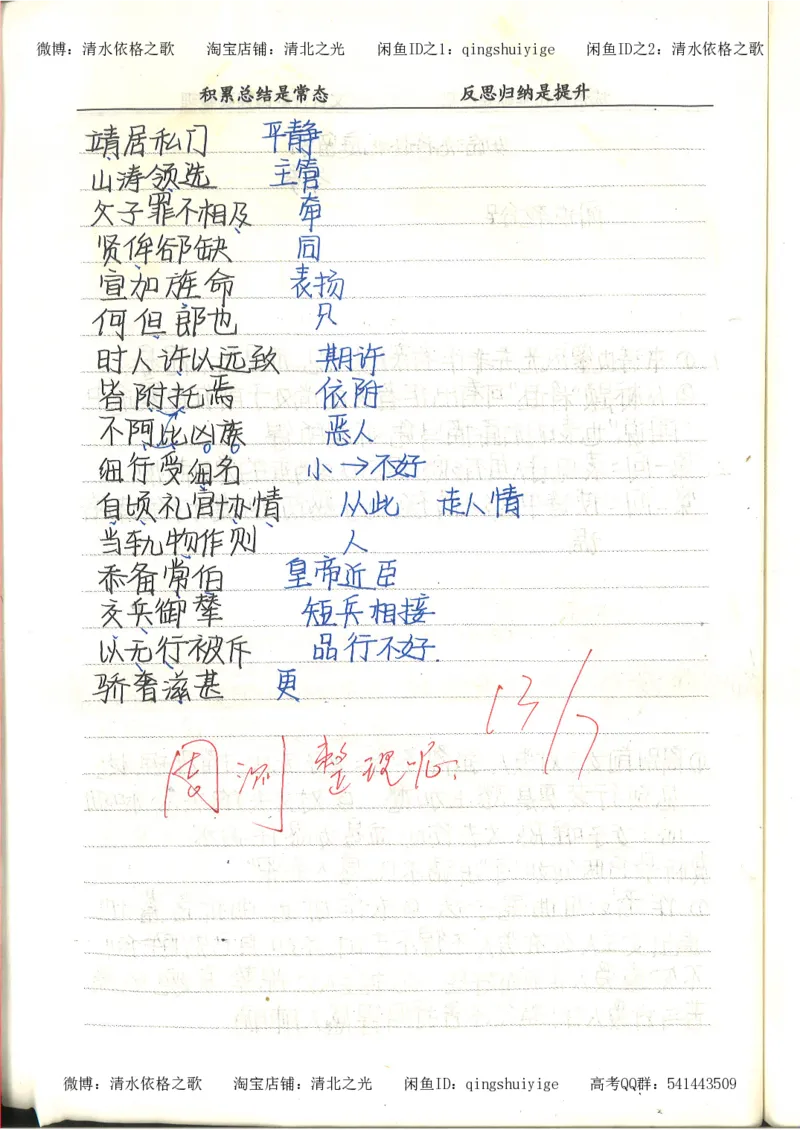 微博：清水依格之歌 淘宝店铺：清北之光 闲鱼ID之1：qingshuiyige 闲鱼ID之2：清水依格之歌
积累总结是常态 反思归纳是提升
靖居私门 平静
山涛领选 主管
父子罪不相及 牵
贤侔郤缺 同
宣加旌命 表扬
何但郎也 只
时人许以远致 期许
皆附托焉 依附
不阿比凶族 恶人
细行受细名 小→不好
自顷礼官协情 从此 走人情
当轨物作则 人
忝备常伯 皇帝近臣
交兵御辇 短兵相接
以无行被斥 品行不好
骄奢滋甚 更
13/7
周测整理呢.
微博：清水依格之歌 淘宝店铺：清北之光 闲鱼ID：qingshuiyige 高考QQ群：541443509